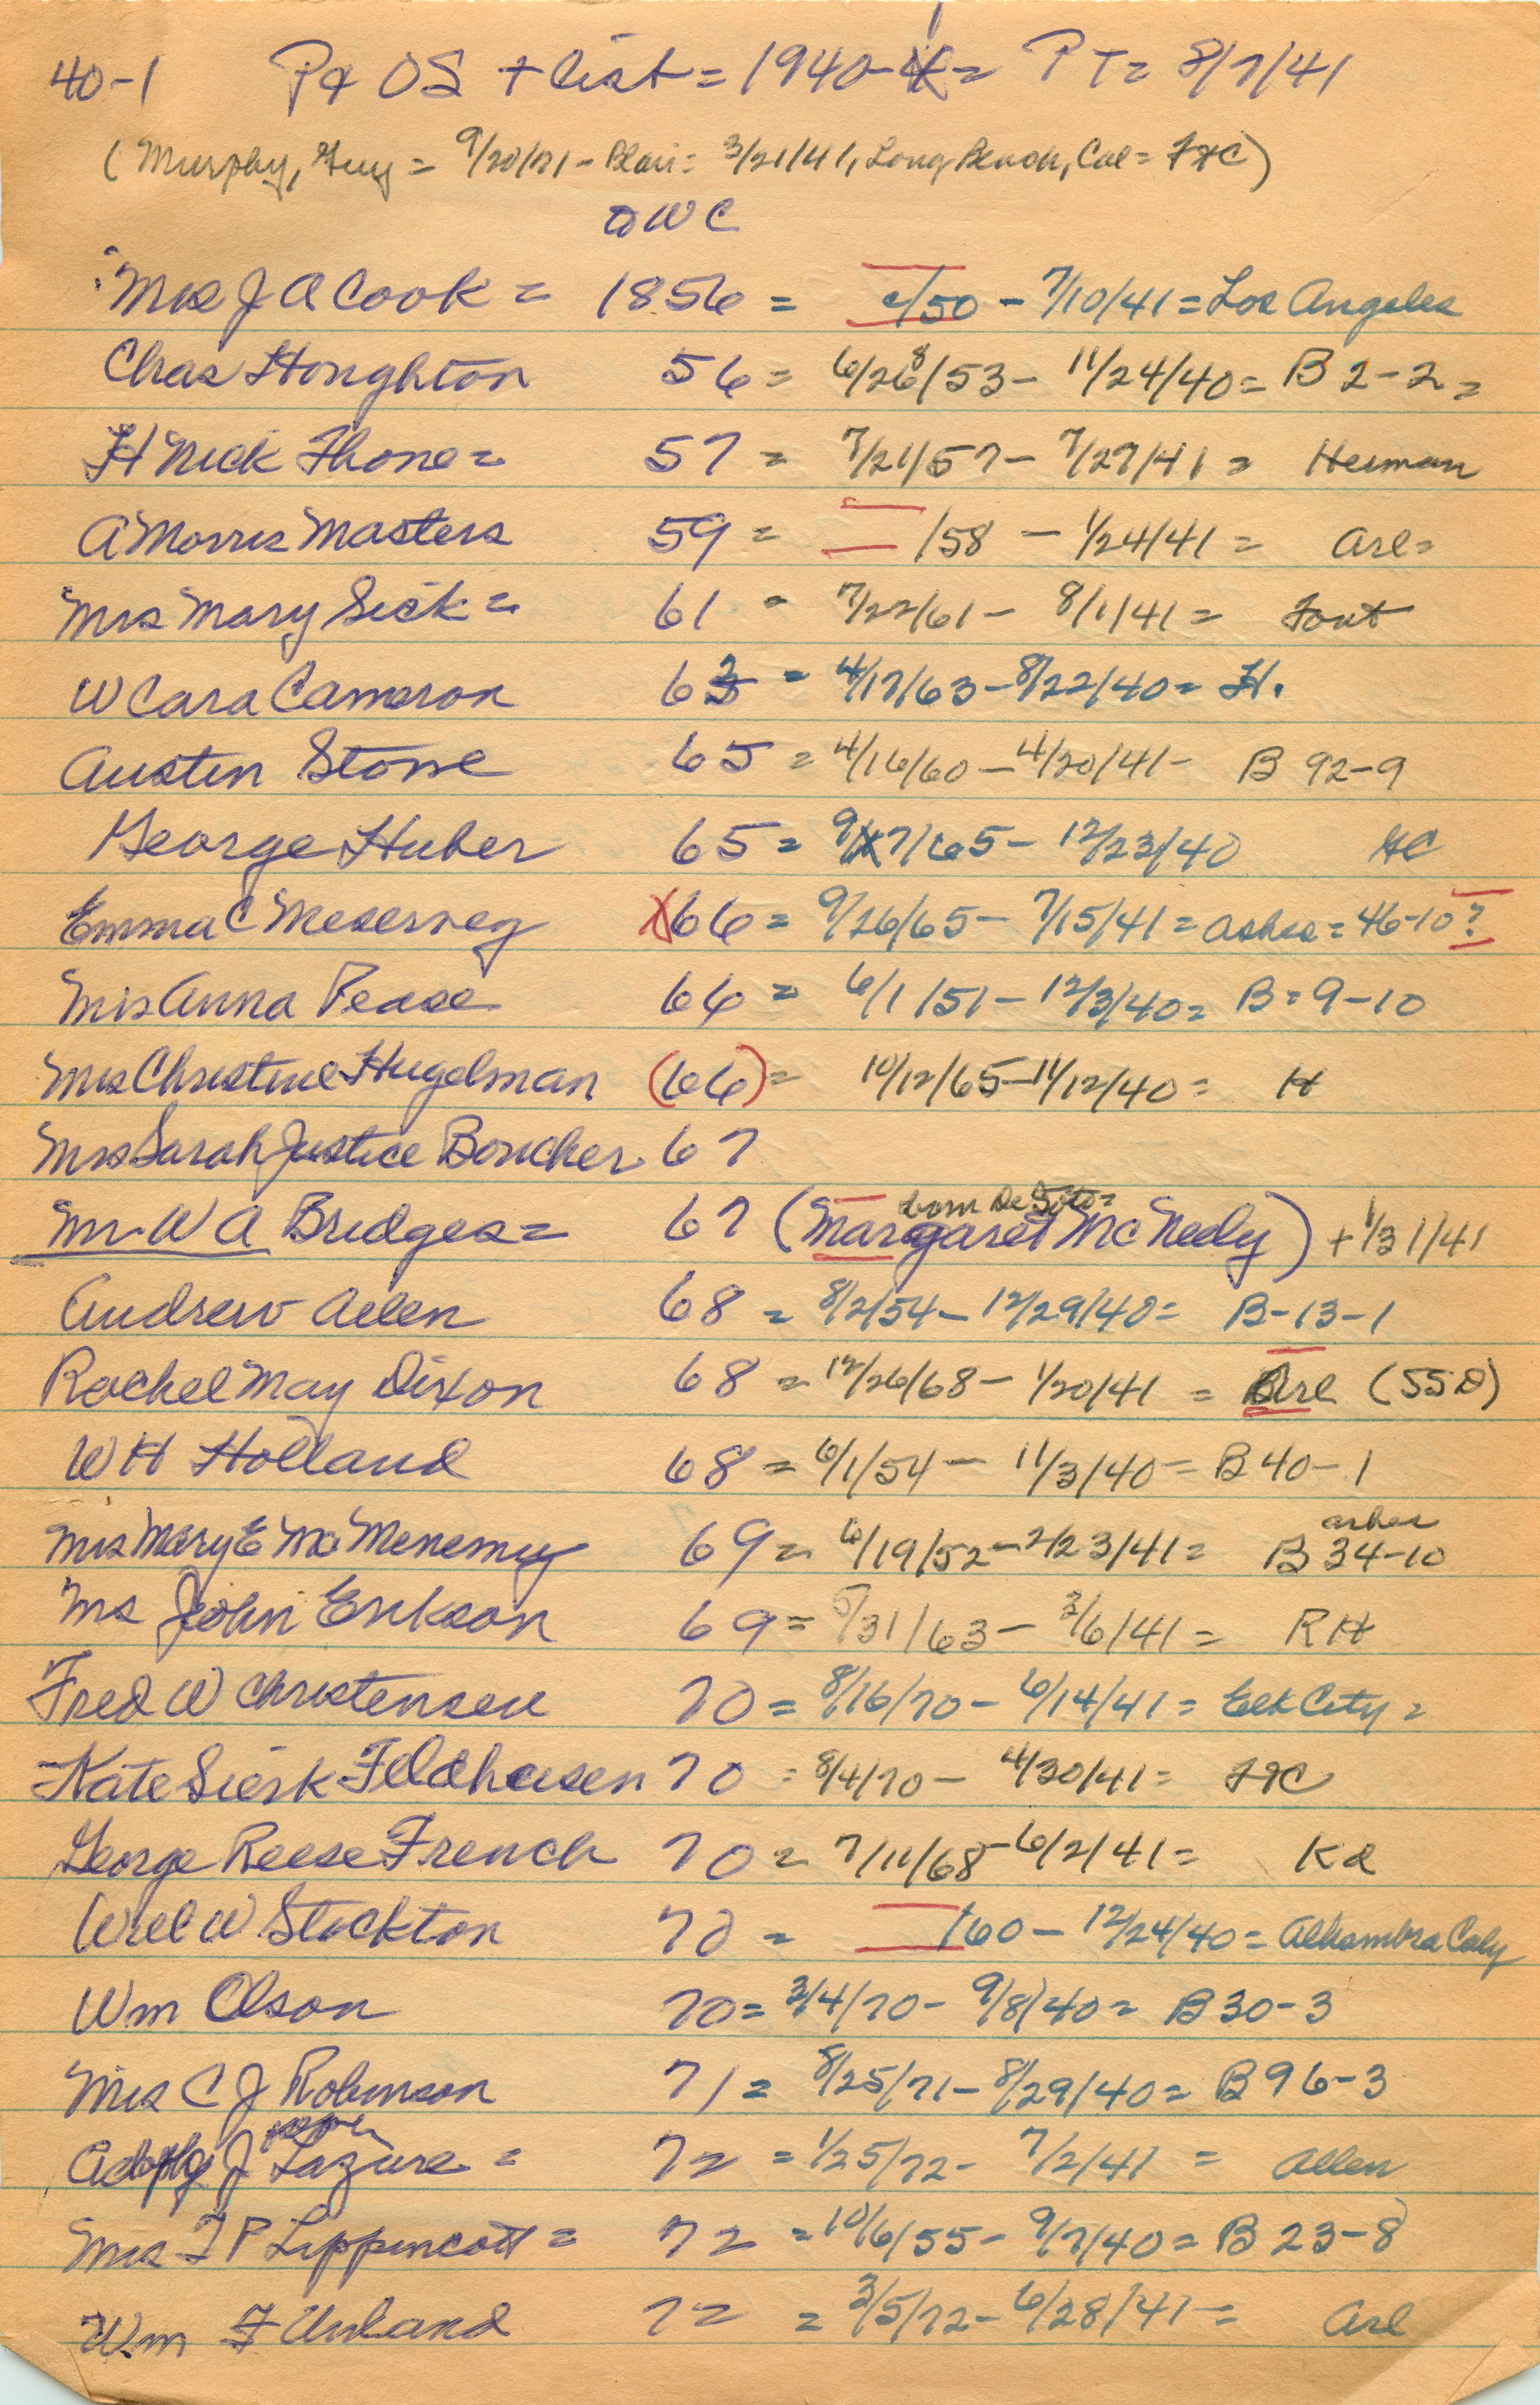 40-1 P& OS + list = 1940-1 = PT = 8/7/41
(Murphy, Guy = 9/20/71 - Blair = 3/21/41, Long Beach, Cal =
OWC
Mrs J A Cook = 1856 = /50 - 7/10/41 = Los Angeles
Chas Houghton 56 = 6/28/53 - 11/24/40 = B 2-2 =
H Nick Thone = 57 = 7/21/57 - 7/27/41 = Herman
A Morris Masters 59 = /58 - 1/24/41 = Arl =
Mrs Mary Sick = 61 = 7/22/61 - 8/1/41 = Font
W Cara Cameron 63 = 4/17/63 - 8/22/40 = H.
Austin Stone 65 = 4/16/60 - 4/20/41 - B 92-9
George Huber 65 = 9/7/65 - 12/23/40 HC
Emma C Meservey X66 = 9/26/65 - 7/15/41 = ashes = 46-10?
Mrs Anna Pease 66 = 6/1/51 - 12/3/40 = B = 9-10
Mrs Christine Hugelman (66) = 10/12/65 - 11/12/40 = H
Mrs Sarah Justice Boucher 67
born DeSoto =
Mr. W A Bridges = 67 (Margaret McNeely) + 1/31/41
Andrew Allen 68 = 8/2/54 - 12/29/40 = B-13-1
Rachel May Dixon 68 = 12/26/68 - 1/20/41 = Arl (55D)
W H Holland 68 = 6/1/54 - 11/3/40 = B 40-1
ashes
Mrs Mary E McMenemy 69 = 6/19/52 - 2/23/41 = B 34-10
Mrs John Erikson 69 = 5/31/63 - 3/6/41 = RH
Fred W Christensen 70 = 8/16/70 - 6/14/41 = Elk City =
Kate Sierk Feldhusen 70 = 8/4/70 - 4/30/41 =
George Reese French 70 = 7/11/68 - 6/2/41 = Kd
Will W Stockton 70 = /60 - 12/24/40 = Alhambra Caly
Wm Olson 70 = 3/4/70 - 9/8/40 = B 30-3
Mrs C J Robinson 71 = 8/25/71 - 8/29/40 = B 96-3
J Lazure = 72 = 1/25/72 - 7/2/41 = Allen
Mrs T P Lippincott = 72 = 10/6/55 - 9/7/40 = B 23-8
Wm F Unland 72 = 3/5/72 - 6/28/41 = Arl